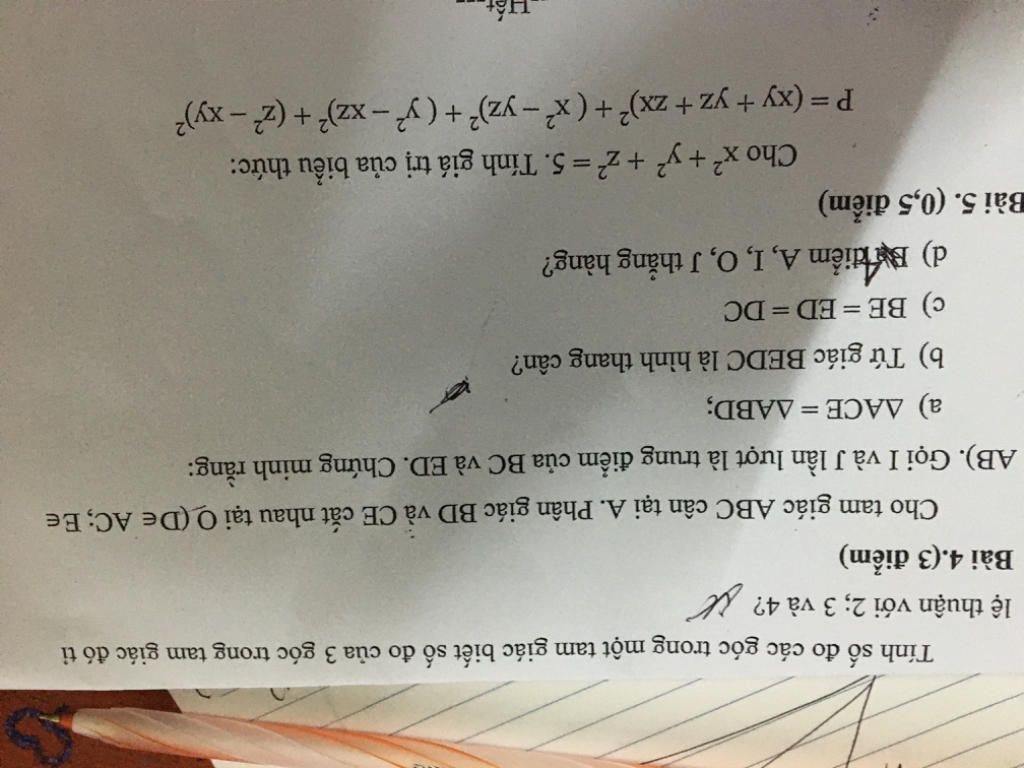 Tính số đo các góc trong một tam giác biết số đo của 3 góc trong tam giác đó tỉ
lệ thuận với 2; 3 và 4?
Bài 4.(3 điểm)
Cho tam giác ABC cân tại A. Phân giác BD và CE cắt nhau tại O (D∈ AC; E∈
AB). Gọi I và J lần lượt là trung điểm của BC và ED. Chứng minh rằng:
a) ΔACE = ΔABD;
b) Tứ giác BEDC là hình thang cân?
c) BE = ED = DC
d) 4 điểm A, I, O, J thẳng hàng?
Bài 5. (0,5 điểm)
Cho x² + y² + z² = 5. Tính giá trị của biểu thức:
P = (xy + yz + zx)² + ( x² – yz)² + ( y² – xz)² + (z² – xy)²
Hết